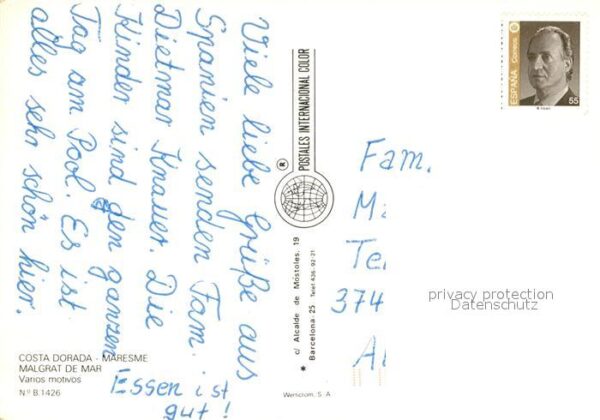 Viele liebe Grüße aus
Spanien senden Fam.
Dietmar Knauer. Die
Kinder sind den ganzen
Tag am Pool. Es ist
alles sehr schön hier.
Essen ist
gut!
COSTA DORADA - MARESME
MALGRAT DE MAR
Varios motivos
Nº B. 1426
POSTALES INTERNACIONAL COLOR
®
c/ Alcalde de Móstoles, 19
Barcelona - 25 Telef. 436-92-21
Werncrom, S. A.
ESPAÑA
Correos
55
Fam.
374
privacy protection
Datenschutz